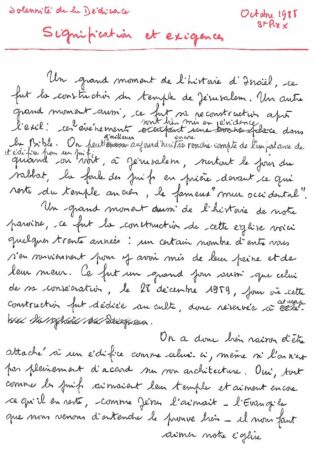 Solennité de la Dédicace
Octobre 1988
St Pie X
Signification et exigences
Un grand moment de l'histoire d'Israël, ce
fut la construction du temple de Jérusalem. Un autre
grand moment aussi, ce fut sa reconstruction après
l'exil : ces événements sont bien mis en évidence dans
la Bible. On peut d'ailleurs aujourd'hui encore se rendre compte de l'importance de
cet édifice pour un juif,
quand on voit, à Jérusalem, surtout le jour du
sabbat, la foule des juifs en prière devant ce qui
reste du temple ancien, le fameux "mur occidental".
Un grand moment aussi de l'histoire de notre
paroisse, ce fut la construction de cette église voici
quelques trente années : un certain nombre d'entre vous
s'en souviennent pour y avoir mis de leur peine et de
leur sueur. Ce fut un grand jour aussi que celui
de sa consécration, le 28 décembre 1959, jour où cette
construction fut dédicacée au culte, donc réservée à cet usage.
On a donc bien raison d'être
attaché à un édifice comme celui-ci, même si l'on n'est
pas pleinement d'accord sur son architecture. Oui, tout
comme les juifs aimaient leur temple et aiment encore
ce qu'il en reste, comme Jésus l'aimait - l'Evangile
que nous venons d'entendre le prouve bien - il nous faut
aimer notre église